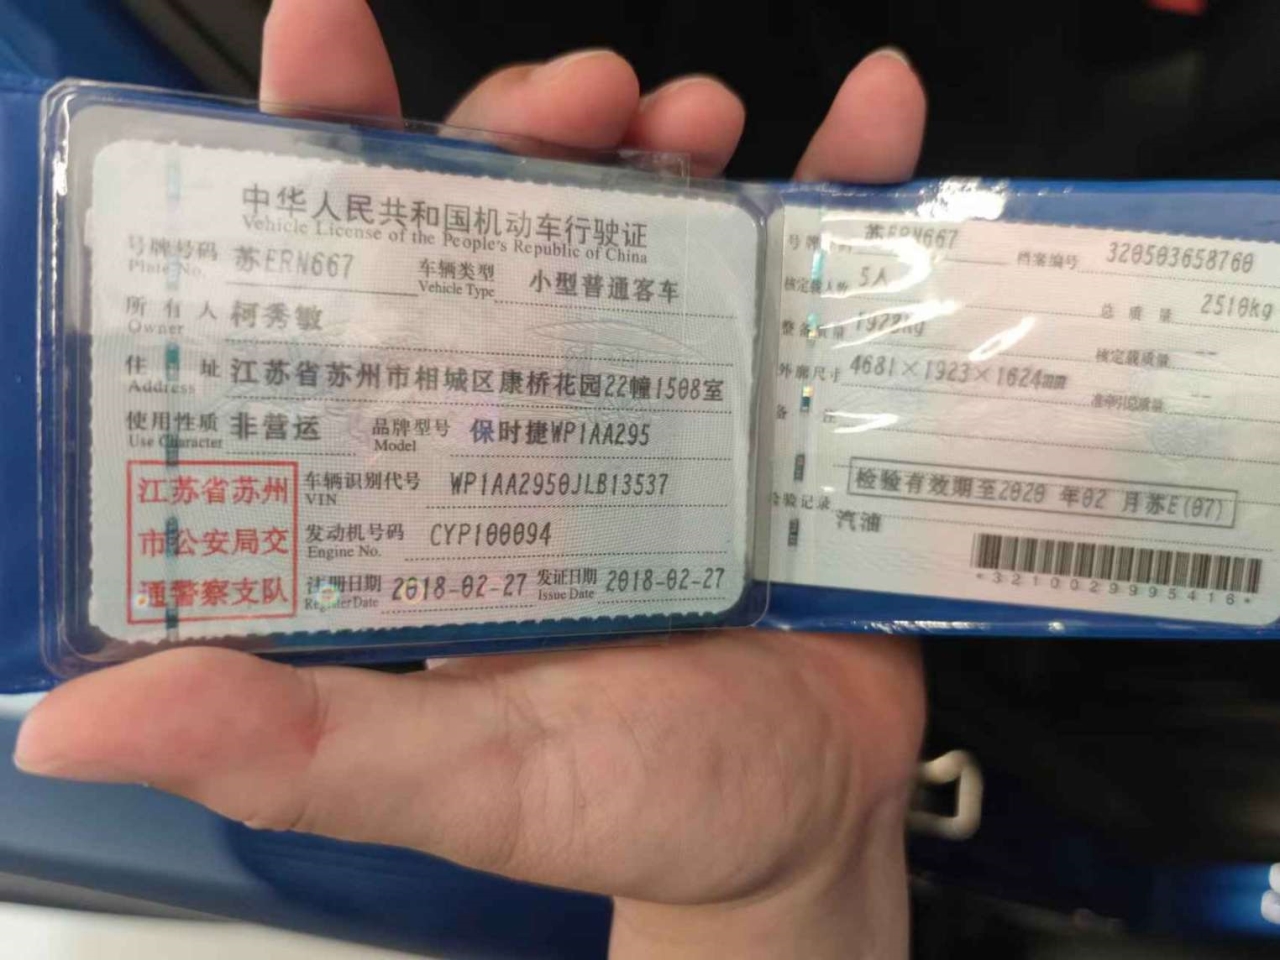 中华人民共和国机动车行驶证
Vehicle License of the People's Republic of China
号牌号码 苏ERN667 车辆类型 小型普通客车
Plate No. Vehicle Type
所有人 柯秀敏
Owner
住址 江苏省苏州市相城区康桥花园22幢1508室
Address
使用性质 非营运 品牌型号 保时捷WP1AA295
Use Character Model
江苏省苏州
市公安局交
通警察支队
车辆识别代号 WP1AA2950JLB13537
VIN
发动机号码 CYP100094
Engine No.
注册日期 2018-02-27 发证日期 2018-02-27
Register Date Issue Date
苏ERN667 档案编号 320503658760
核定载人数 5人 总质量 2510kg
整备质量 1922kg 核定载质量 --
外廓尺寸 4681×1923×1624mm 准牵引总质量 --
备注
检验有效期至2020 年02 月苏E(07)
检验记录
汽油
*3210029995416*